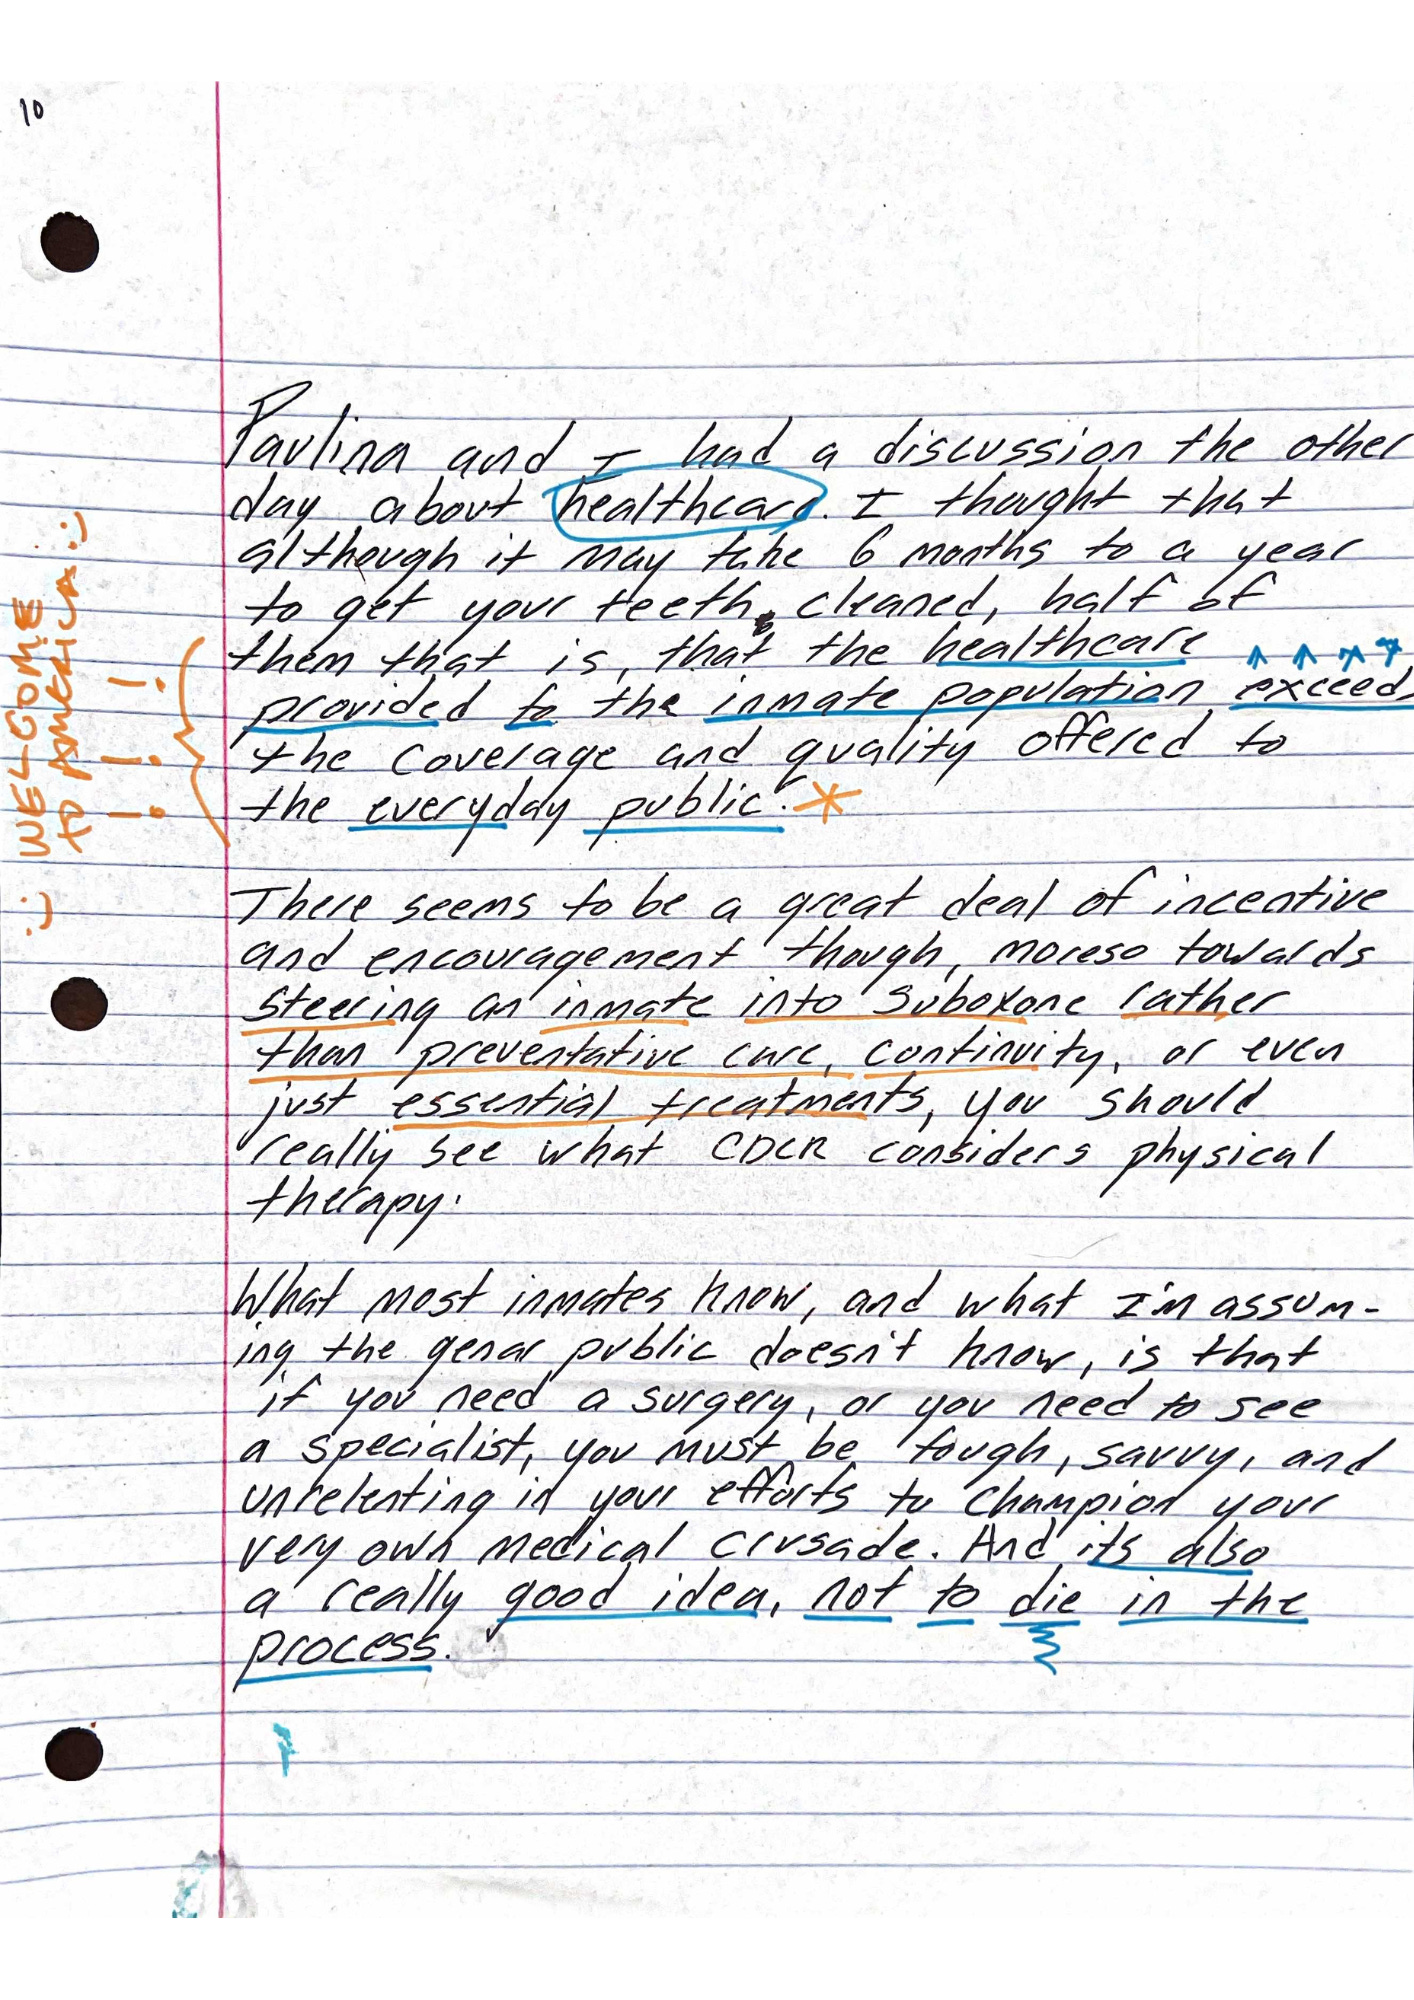 10
Paulina and I had a discussion the other
day about healthcare. I thought that
although it may take 6 months to a year
to get your teeth, cleaned, half of
them that is, that the healthcare
provided to the inmate population exceed
the coverage and quality offered to
the everyday public. *
:) WELCOME
TO AMERICA :)
! ! !
There seems to be a great deal of incentive
and encouragement though, moreso towards
steering an inmate into Suboxone rather
than preventative care, continuity, or even
just essential treatments, you should
really see what CDCR considers physical
therapy.
What most inmates know, and what I'm assum-
ing the genar public doesn't know, is that
if you need a surgery, or you need to see
a specialist, you must be tough, savvy, and
unrelenting in your efforts to champion your
very own medical crusade. And its also
a really good idea, not to die in the
process.